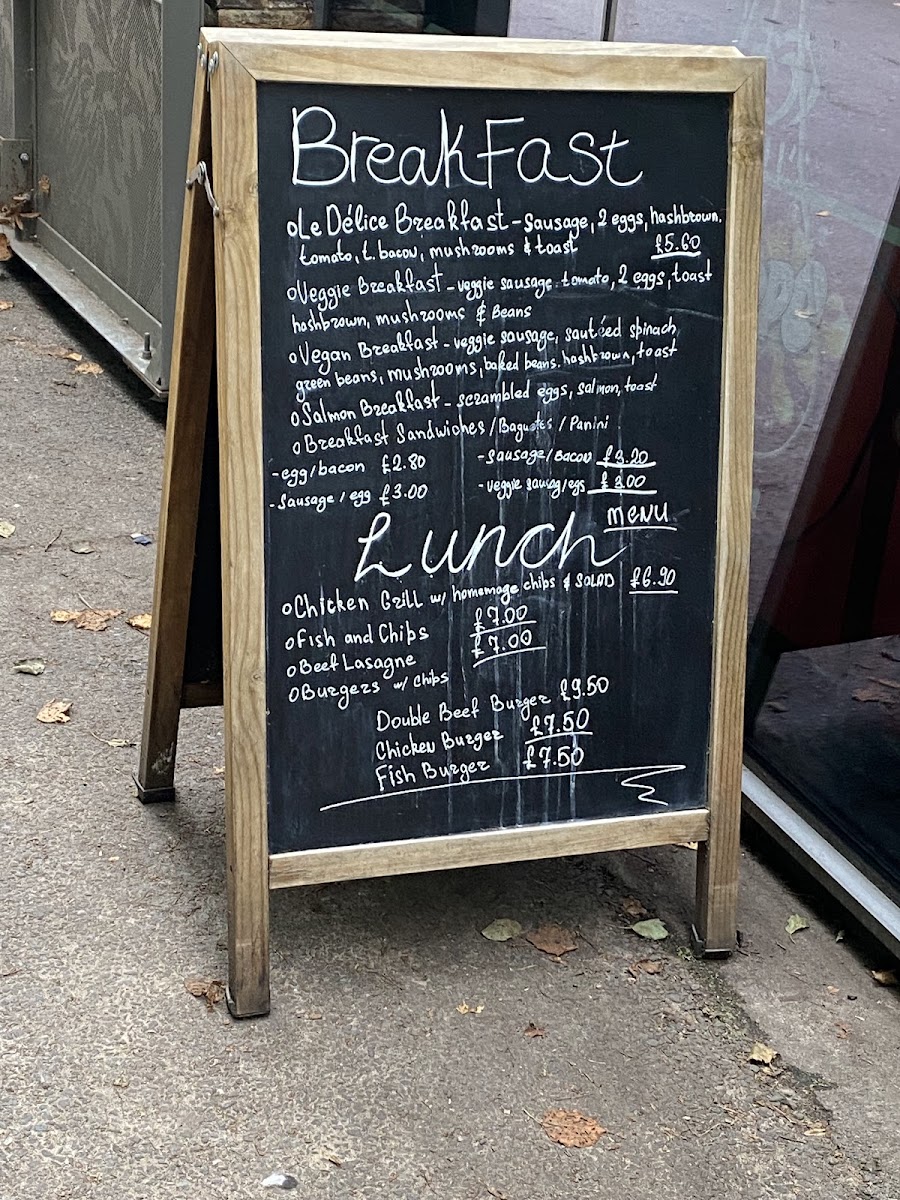 BreakFast
oLe Délice Breakfast - sausage, 2 eggs, hashbrown.
tomato, t. bacon, mushrooms & toast £5.60
oVeggie Breakfast - veggie sausage. tomato, 2 eggs, toast
hashbrown, mushrooms & Beans
oVegan Breakfast - veggie sausage, sautéed spinach,
green beans, mushrooms, baked beans. hashbrown, toast
oSalmon Breakfast - scrambled eggs, salmon, toast
oBreakfast Sandwiches / Baguetes / Panini
-egg/bacon £2.80 -sausage/bacon £3.20
-sausage / egg £3.00 -veggie sausag/egs £3.00
MENU
Lunch
oChicken Grill w/ homemage chips & SALAD £6.90
oFish and Chips £7.00
oBeef Lasagne £7.00
oBurgers w/ Chips
Double Beef Burger £9.50
Chicken Burger £7.50
Fish Burger £7.50